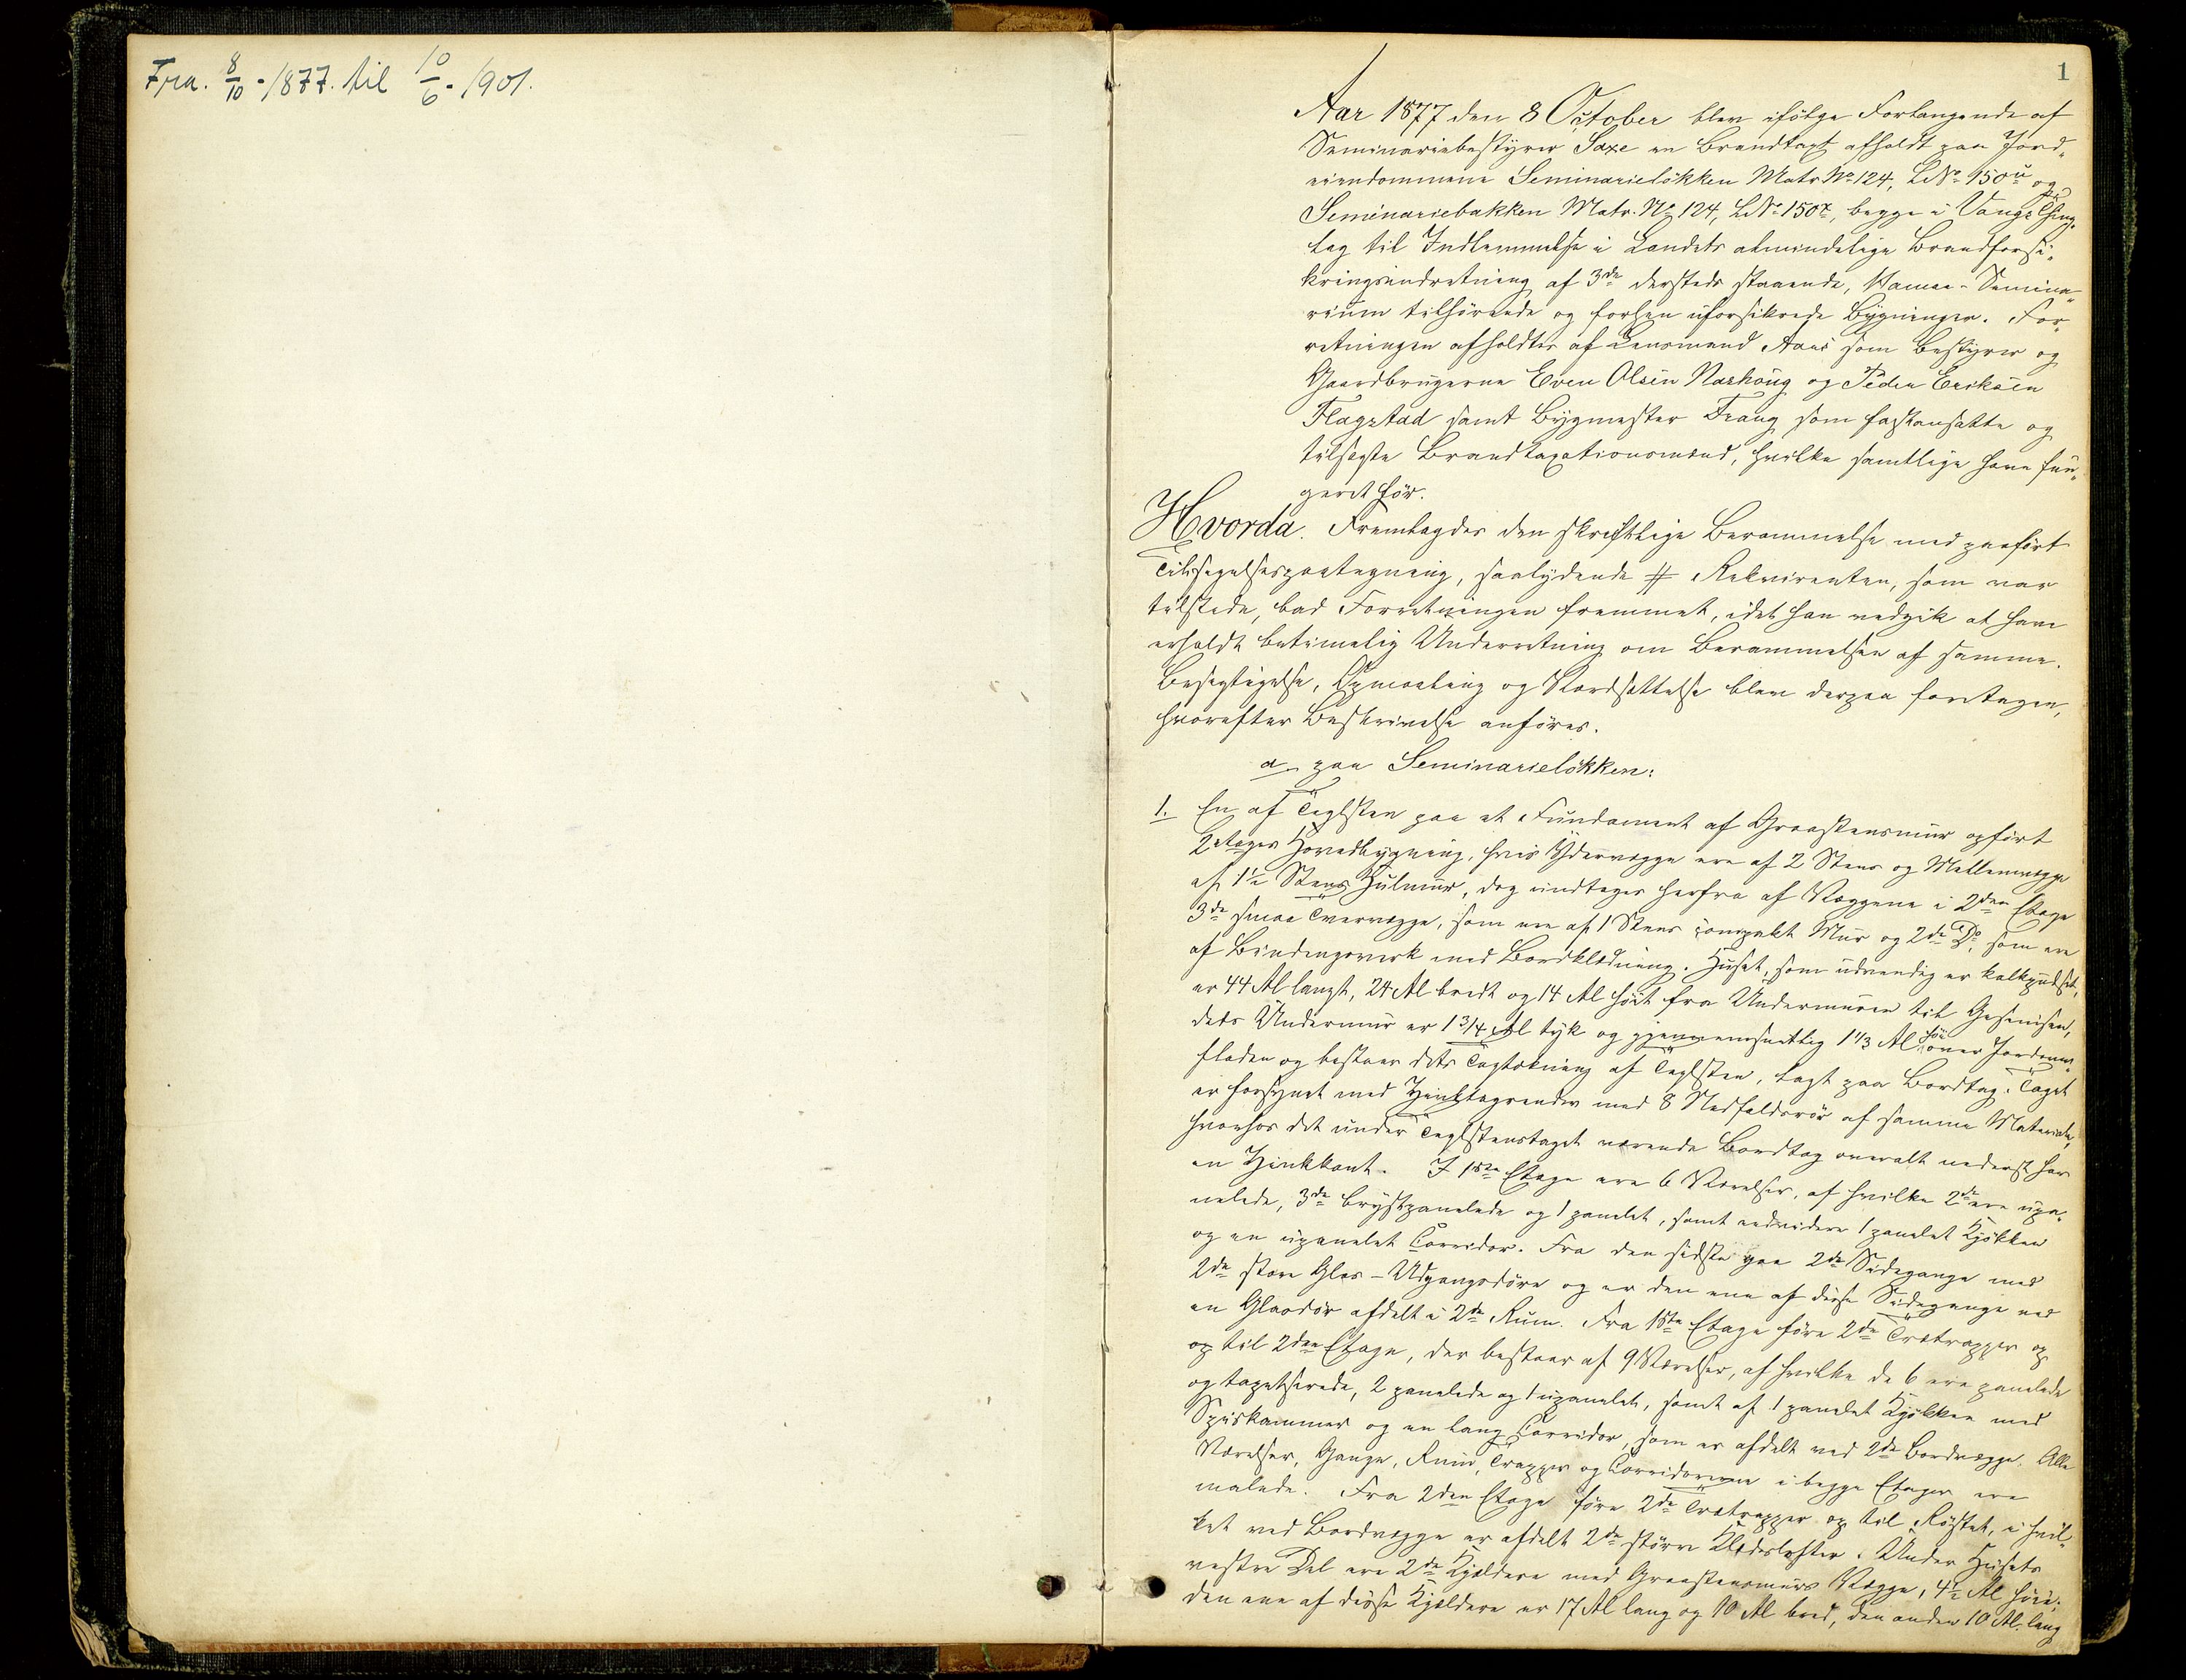 Fra. 8/10 - 1877. til 10/6 - 1901.
1
Aar 1877 den 8 October blev ifölge Forlangende af
Seminariebestyrer Saxe en Brandtaxt afholdt paa Jord„
eiendommene Seminarielökken Matr. No 124, LNo 150u og
Seminariebakken Matr. No 124, LNo 150x, begge i Vangs Thing„
lag til Indlemmelse i Landets almindelige Brandforsi„
kringsindretning af 3de dersteds staaende, Hamar-Semina„
rium tilhörende og forhen uforsikrede Bygninger. For„
retningen afholdtes af Lensmand Aaus som Bestyrer og
Gaardbrugerne Even Olsen Narhoug og Peder Eriksen
Flagstad samt Bygmester Frang som fastansatte og
tilsagte Brandtaxationsmænd, hvilke samtlige have fun„
geret för.
Hvorda. Fremlagdes den skriftlige Berammelse med paafört
Tilsigelsespaategning, saalydende # Rekvirenten, som var
tilstede, bad Forretningen fremmet, idet han vedgik at have
erholdt betimelig Underretning om Berammelsen af samme.
Besigtigelse, Opmaaling og Værdsættelse blev derpaa foretagen,
hvorefter Beskrivelse anföres.
a. paa Seminarielökken:
1. En af Teglsten paa et Fundament af Graastensmur opfört
2 Etages Hovedbygning, hvis Ydervægge ere af 2 Stens og Mellemvægge
af 1½ Stens Hulmur, dog undtages herfra af Væggene i 2den Etage
3de smaa Tvervægge, som ere af 1 Stens compakt Mur og 2de Do, som ere
af Bindingsverk med Bordklædning. Huset, som udvendig er kalkpudset,
er 44 Al langt, 24 Al bredt og 14 Al höit fra Undermuren til Gesimsen,
dets Undermur er 1 3/4 Al tyk og gjennemsnitlig 1 1/3 Al höi over Jordover„
fladen og bestaar dets Tagtækning af Teglsten, lagt paa Bordtag. Taget
er forsynet med Zinktagrender med 8 Nedfaldsrör af samme Materiale,
hvorhos det under Teglstenstaget værende Bordtag overalt nederst har
en Zinkkant. I 1ste Etage ere 6 Værelser, af hvilke 2de ere upa„
nelede, 3de brystpanelede og 1 panelet, samt endvidere 1 panelet Kjökken
og en upanelet Corridor. Fra den sidste gaa 2de Sidegange med
2de store Glas-Udgangsdöre og er den ene af disse Sidegange ved
en Glasdör afdelt i 2de Rum. Fra 1ste Etage före 2de Trætrapper op
op til 2den Etage, der bestaar af 9 Værelser, af hvilke de 6 ere panelede
og tapetserede, 2 panelede og 1 upanelet, samt af 1 panelet Kjökken med
Spiskammer og en lang Corridor, som er afdelt ved 2de Bordvægge. Alle
Værelser, Gange, Rum, Trapper og Corridorerne i begge Etager ere
malede. Fra 2den Etage före 2de Trætrapper op til Röstet, i hvil„
ket ved Bordvægge er afdelt 2de större Klædeslofter. Under Husets
vestre Del ere 2de Kjældere med Graastensmurs Vægge, 4½ Al höie;
den ene af disse Kjældere er 17 Al lang og 10 Al bred, den anden 10 Al. lang